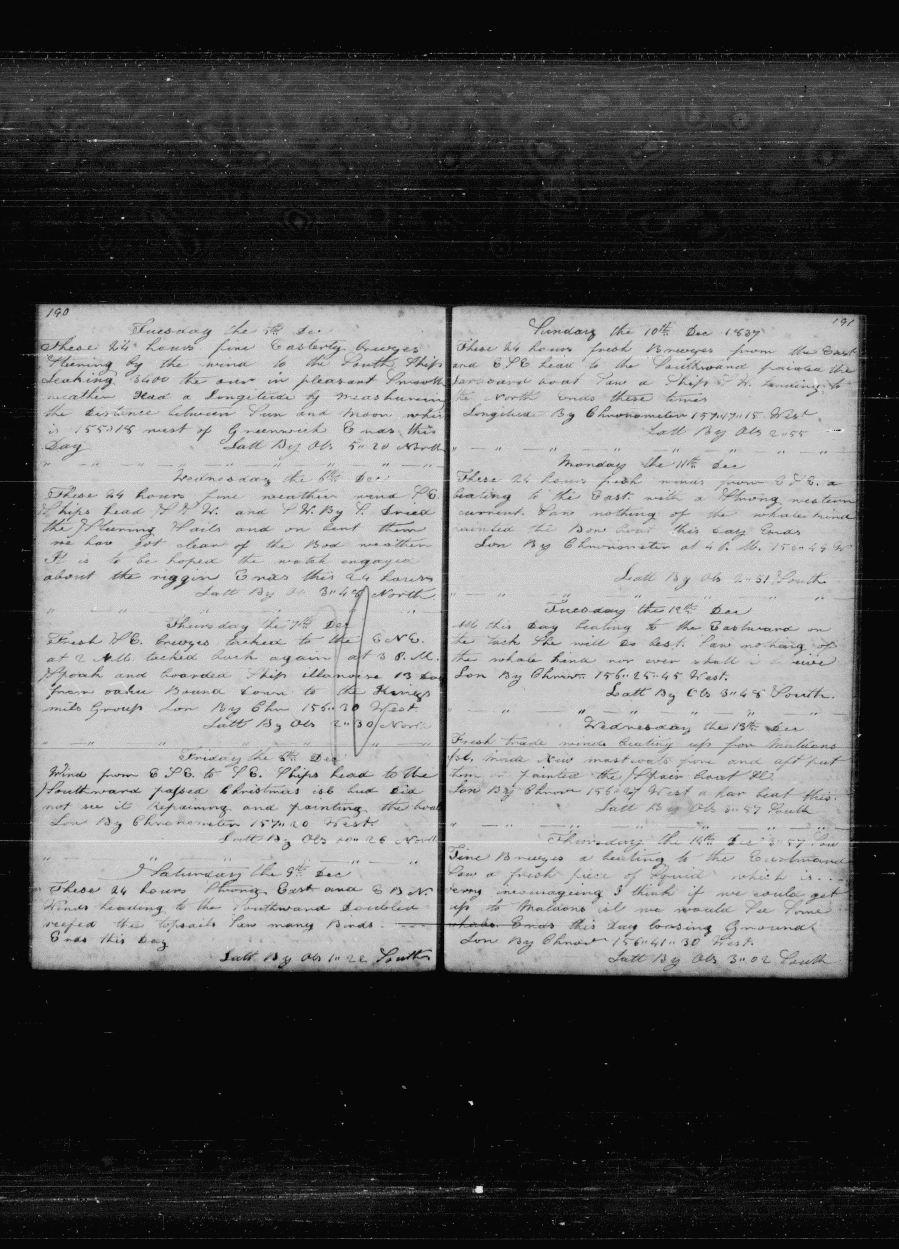 190
Tuesday the 5th Dec
These 24 hours fine Easterly breezes
Steering by the wind to the South Ship
Leaking 3400 the our in pleasant Smooth
weather Had a Longitude by measurein
the distance between Sun and Moon which
is 155"18 west of Greenwich Ends this
Day Latt By Obs 5"20 North
Wednesday the 6th Dec
These 24 hours fine weather wind S.E.
Ships head S.S.W. and S.W. By S. Dried
the Steering Sails and on bent them
we have Got clear of the Bad weather
It is to be hoped the watch engaged
about the riggin Ends this 24 hours
Latt By Ob 3"45 North
Thursday the 7th Dec
Fresh S.E. breezes tacked to the E.N.E.
at 2 A.M. tacked back again at 3 P.M.
Spoak and boarded Ship illanoise 13
from oahu Bound down to the Kings
mils Group Lon By Chr 156"30 West
Latt By Obs 2"30 North
Friday the 8th Dec
Wind from E.S.E. to S.E. Ships head to the
Southward passed Christmas isl but did
not see it Repairing and painting the boat
Lon By Chronometer 157"20 West
Latt By Obs 00"26 North
Saturday the 9th Dec
These 24 hours Strong East and E B N
Winds heading to the Southward Doubled
reefed the topsails Saw many Birds.
Ends this Day
Latt By Obs 1"22 South
191
Sunday the 10th Dec 1837
These 24 hours fresh Breezes from the East
and E.S.E. head to the Southward painted the
Larboard boat Saw a Ship standing to
the North Ends these times
Longitude By Chronometer 157"17"15 West
Latt By Obs 2"55
Monday the 11th Dec
These 24 hours fresh winds from E.S.E. a
beating to the East. with a Strong western
current. Saw nothing of the whale kind
painted the Bow boat this day Ends
Lon By Chronometer at 4 P.M. 156"45 W
Latt By Ob 2"51 South
Tuesday the 12th Dec
All this Day beating to the Eastward on
the tack She will do best. Saw nothing of
the whale kind nor ever shall
Lon By Chron. 156"25"45 West.
Latt By Obs 3"45 South.
Wednesday the 13th Dec
Fresh trade winds beating up for Maldons
isl. made New mast coats fore and aft put
them on painted the Spair boat &c
Lon By Chron 156"27 West a har beat this.
Latt By Obs 3"57 South
Thursday the 14th Dec 3"57 Sou
Fine Breezes a beating to the Eastward
Saw a fresh piece of Squid which is
very encouraging I think if we could get
up to Maldons isl we would See Some
whale. Ends this Day loosing Ground
Lon By Chron 156"41"30 West.
Latt By Obs 3"02 South